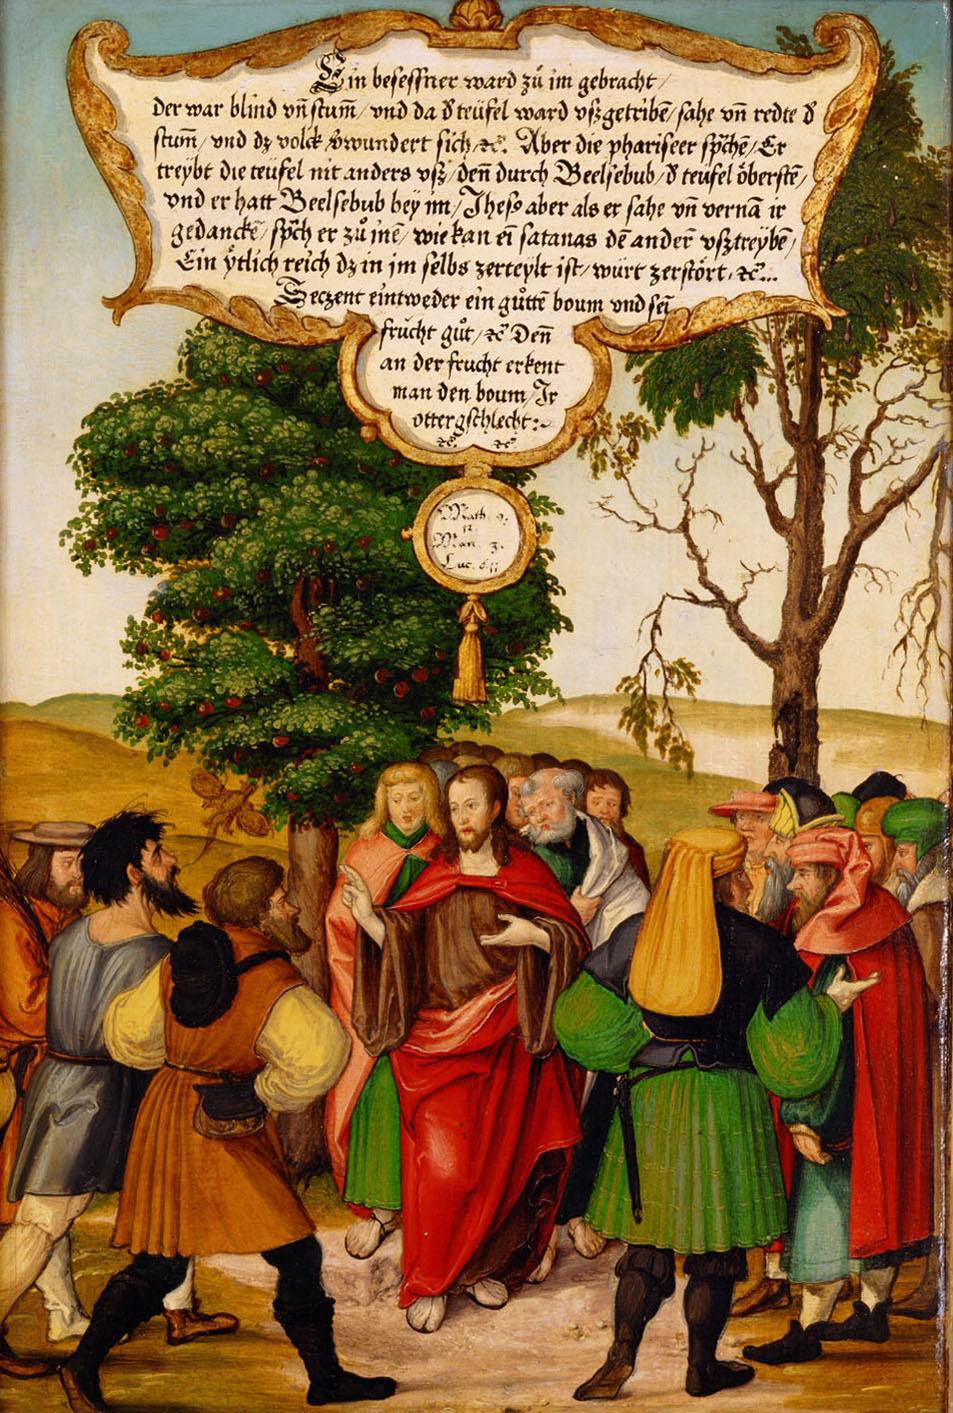 Ein besessner ward zů im gebracht/
der war blind vn̄ stum̄/ vnd da d̕ teüfel ward vſzgetribē/ sahe vn̄ redte d̕
stum̄/ vnd dz volck v̕wundert sich/ ꝛc̄. Aber die phariseer sp̄chē/ Er
treÿbt die teüfel nit anders vſz/ den̄ durch Beelsebub/ d̕ teüfel öberstē/
vnd er hatt Beelsebub beÿ im/ Jheſꝰ aber als er sahe vn̄ vernā ir
gedanckē/ sp̄ch er zů inē/ wie kan eī satanas dē anderē vſztreÿbē/
Ein ÿtlich reich dz in im selbs zerteÿlt ist/ würt zerstört, ꝛc̄...
Seczent eintweder ein gůttē boum vnd seī
frücht gůt/ ꝛc̄ Den̄
an der frucht erkent
man den boum/ Jr
ottergschlecht:
ꝛc̄. ꝛc̄
Math. 9.
12.
Mar. 3.
Luc. 6. 11